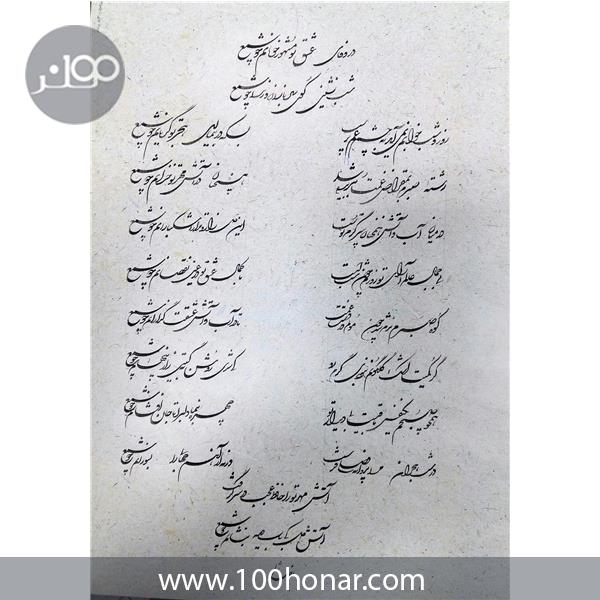 صد هنر
در وفای عشق تو مشهور خوبانم چو شمع
شب نشین کوی سربازان و رندانم چو شمع
روز و شب خوابم نمی آید به چشم غم پرست بسکه در بیماری هجر تو گریانم چو شمع
رشته صبرم بمقراض غمت ببریده شد همچنان در آتش تو سوزانم چو شمع
در میان آب و آتش همچنان سرگرم توست این دل زار نزار اشکبارانم چو شمع
بی جمال عالم آرای تو روزم چون شب است با کمال عشق تو در عین نقصانم چو شمع
کوه صبرم نرم شد چون موم در دست غمت تا در آب و آتش عشقت گدازانم چو شمع
گر کمیت اشک گلگونم نبودی گرم رو کی شدی روشن بگیتی راز پنهانم چو شمع
همچو صبحم یکنفس باقیست با دیدار تو چهره بنما دلبرا تا جان برافشانم چو شمع
در شب هجران مرا پروانه وصلی فرست ورنه از آهم جهانی را بسوزانم چو شمع
آتش مهر تو را حافظ عجب در سر گرفت
آتش دل کی به آب دیده بنشانم چو شمع
www.100honar.com